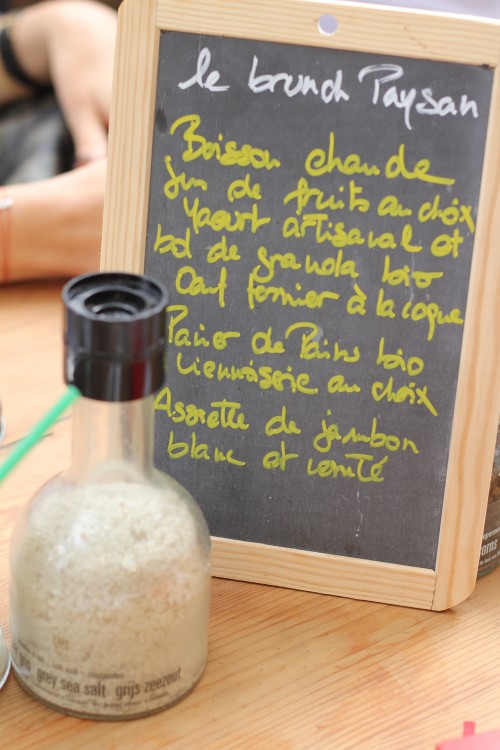 le brunch Paysan
Boisson chaude
jus de fruits au choix
Yaourt artisanal et
bol de granola bio
Oeuf fermier à la coque
Panier de Pains bio
Viennoiserie au choix
Assiette de jambon
blanc et comté
grey sea salt grijs zeezout